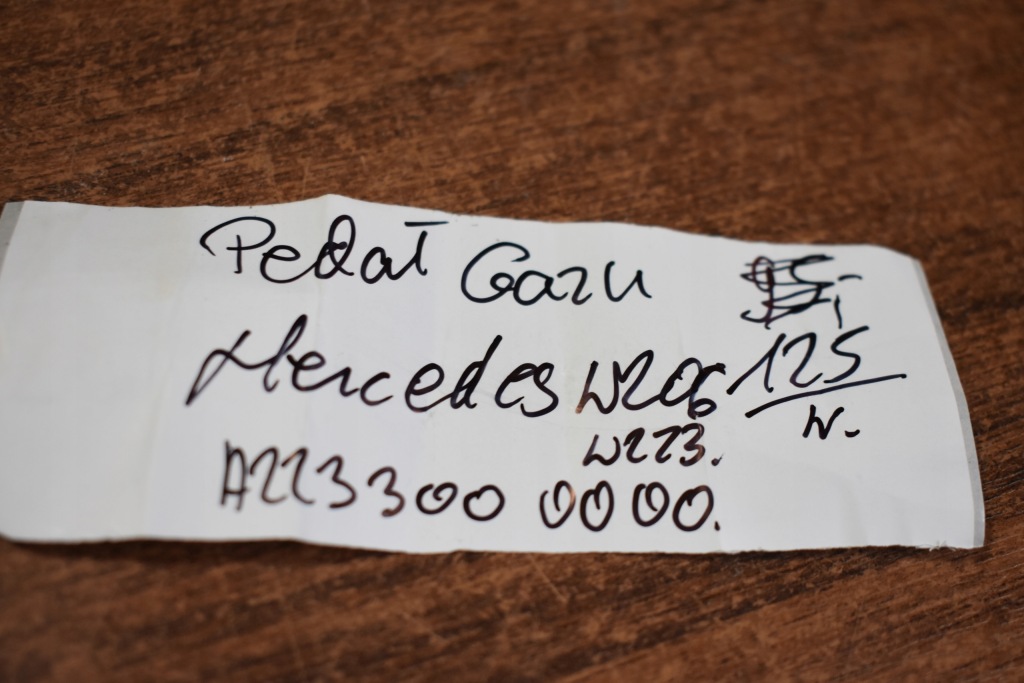 Pedał Gazu
Mercedes W206 125
W223. W.
A223300 0000.